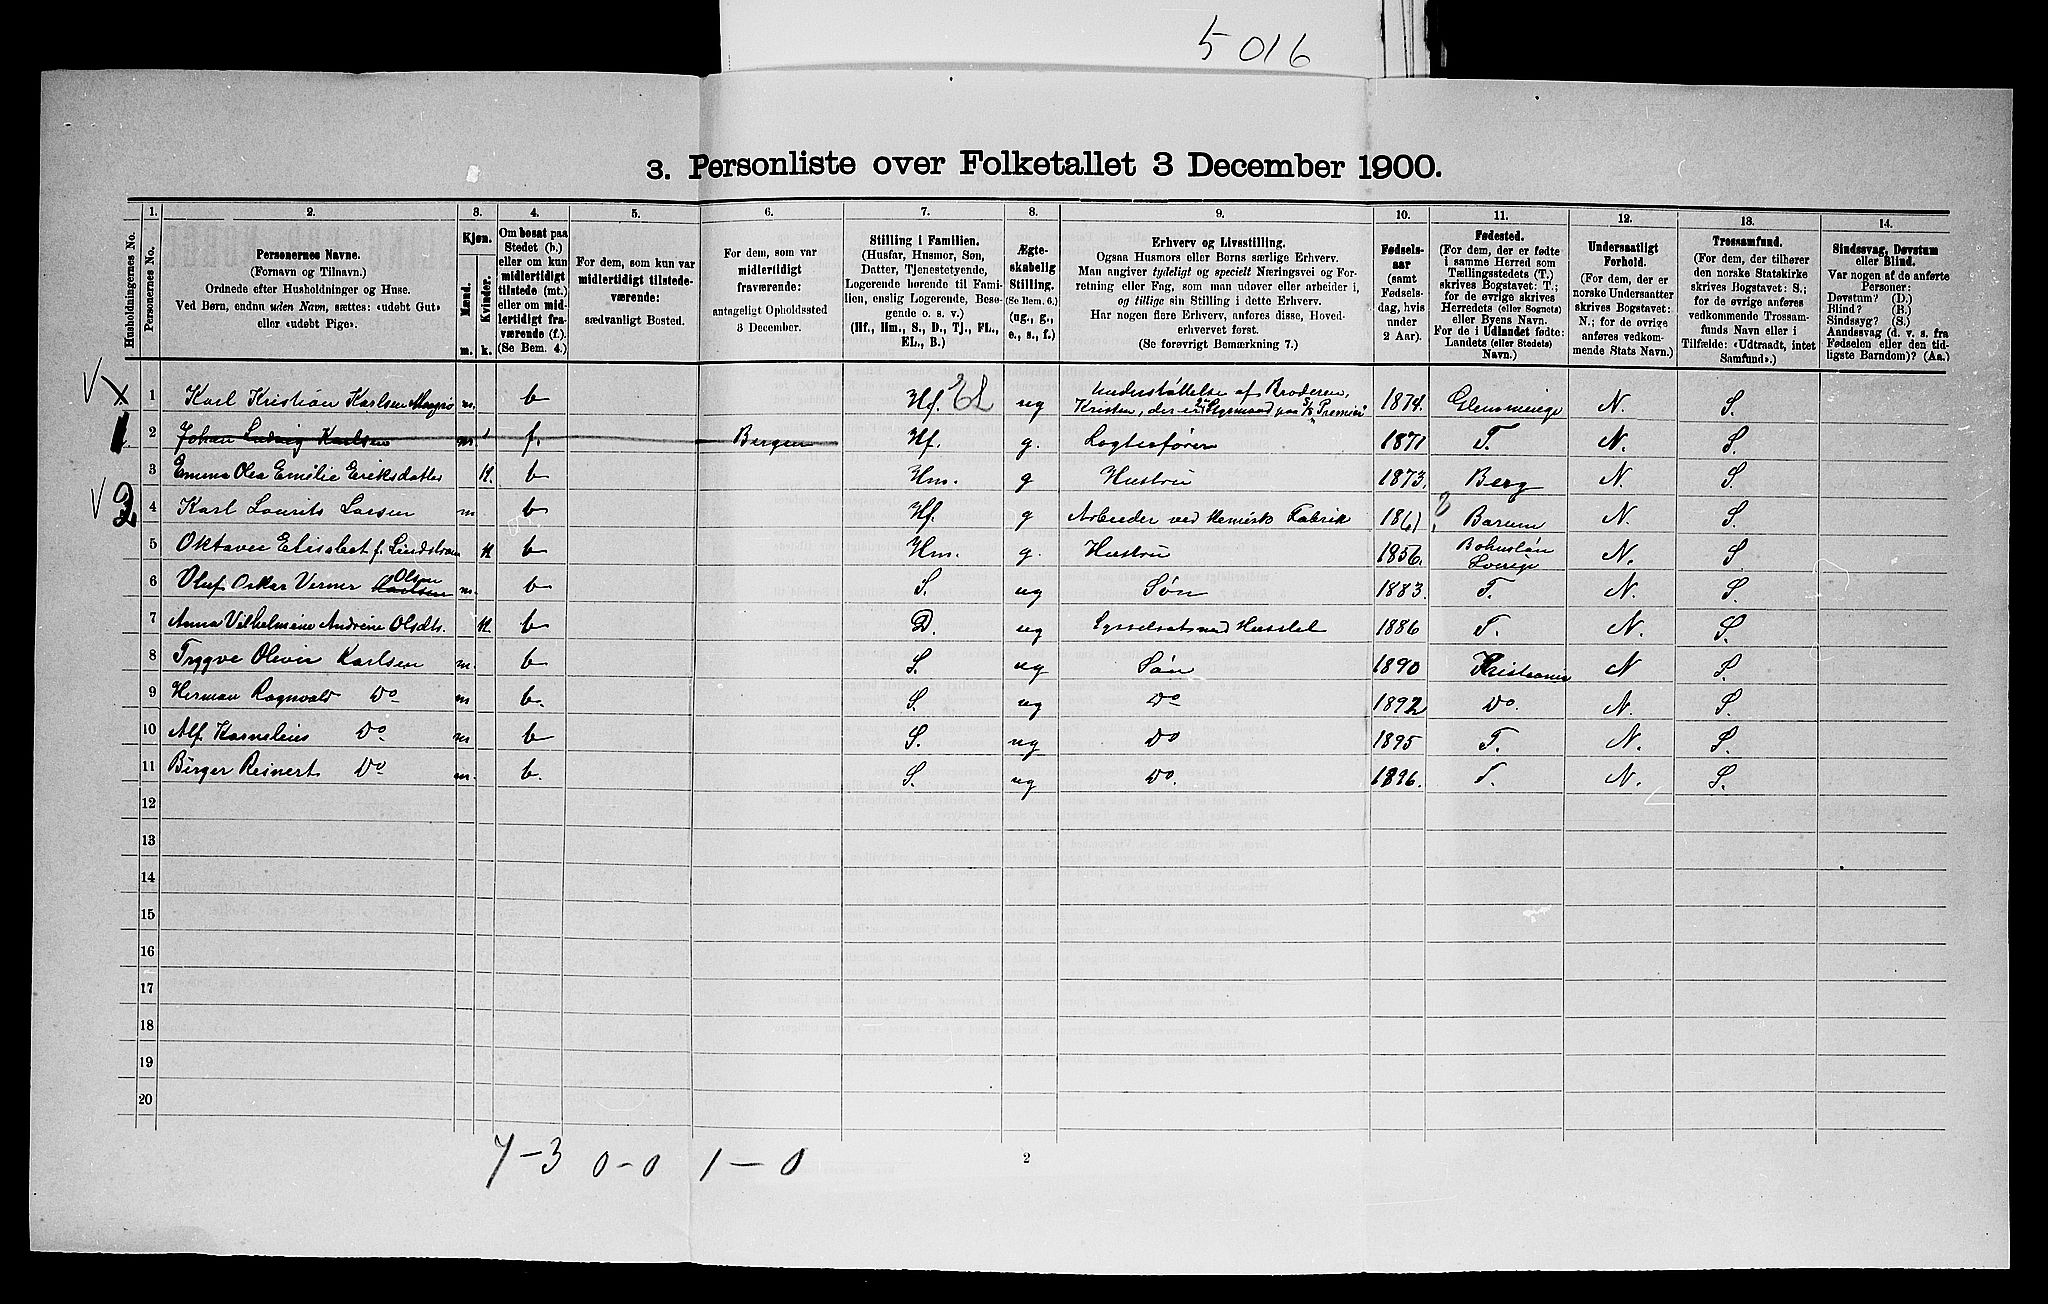 5016
3. Personliste over Folketallet 3 December 1900.
1. 2. 3. 4. 5. 6. 7. 8. 9. 10. 11. 12. 13. 14.
Husholdningernes No.
Personernes No.
Personernes Navne.
(Fornavn og Tilnavn.)
Ordnede efter Husholdninger og Huse.
Ved Børn, endnu uden Navn, sættes: «udøbt Gut»
eller «udøbt Pige».
Kjøn.
Mænd.
Kvinder.
m. k.
Om bosat paa
Stedet (b.)
eller om kun
midlertidigt
tilstede (mt.)
eller om mid-
lertidigt fra-
værende (f.).
(Se Bem. 4.)
For dem, som kun var
midlertidigt tilstede-
værende:
sædvanligt Bosted.
For dem, som var
midlertidigt
fraværende:
antageligt Opholdssted
3 December.
Stilling i Familien.
(Husfar, Husmor, Søn,
Datter, Tjenestetyende,
Logerende hørende til Fami-
lien, enslig Logerende, Besø-
gende o. s. v.)
(Hf., Hm., S., D., Tj., FL.,
EL., B.)
Ægte-
skabelig
Stilling.
(Se Bem. 6.)
(ug., g.,
e., s., f.)
Erhverv og Livsstilling.
Ogsaa Husmors eller Børns særlige Erhverv.
Man angiver tydeligt og specielt Næringsvei og For-
retning eller Fag, som man udøver eller arbeider i,
og tillige sin Stilling i dette Erhverv.
Har nogen flere Erhverv, anføres disse, Hoved-
erhvervet først.
(Se forøvrigt Bemærkning 7.)
Fødsels-
aar
(samt
Fødsels-
dag, hvis
under
2 Aar).
Fødested.
(For dem, der er fødte
i samme Herred som
Tællingsstedets (T.)
skrives Bogstavet: T.;
for de øvrige skrives
Herredets (eller Sognets)
eller Byens Navn.
For de i Udlandet fødte:
Landets (eller Stedets)
Navn.)
Undersaatligt
Forhold.
(For dem, der er
norske Undersaatter
skrives Bogstavet:
N.; for de øvrige
anføres vedkom-
mende Stats Navn.)
Trossamfund.
(For dem, der tilhører
den norske Statskirke
skrives Bogstavet: S.;
for de øvrige anføres
vedkommende Trossam-
funds Navn eller i
Tilfælde: «Udtraadt, intet
Samfund».)
Sindssvag, Døvstum
eller Blind.
Var nogen af de anførte
Personer:
Døvstum? (D.)
Blind? (B.)
Sindssyg? (S.)
Aandssvag (d. v. s. fra
Fødselen eller den tid-
ligste Barndom)? (Aa.)
V x 1 Karl Kristian Karlsen m. b Hf. EL ug Understøttelse af Broderen, Kristen, der er Styrmand paa S/S Premier 1874. Glemminge N. S.
1 2 Johan Ludvig Karlsen m f. Bergen Hf. g. Logtesfører 1871 T. N. S.
3 Emma Olea Emilie Eriksdatter k. b Hm. g Hustru 1873. Berg N. S.
V 2 4 Karl Laurits Larsen m b Hf. g Arbeider ved kemisk Fabrik 1861 ? Barum N. S.
5 Oktavie Elisabet f. Lindstrøm k b Hm. g. Hustru 1856. Bohuslän Sverige N. S.
6 Oluf Oskar Verner Karlsen Olsen m. b S. ug Søn 1883. T. N. S.
7 Anna Vilhelmine Andrine Olsdtr. k. b D. ug Sysselsat med Husstel 1886 T. N. S.
8 Trygve Oliver Karlsen m. b S. ug Søn 1890 Kristiania N S.
9 Herman Ragnvald Do m b. S. ug Do 1892 Do. N. S.
10 Alf Kornelius Do m b S. ug Do 1895 T. N. S.
11 Birger Reinert Do m. b. S. ug Do. 1896. T. N. S.
12
13
14
15
16
17
18
19
20
7-3 0-0 1-0
2